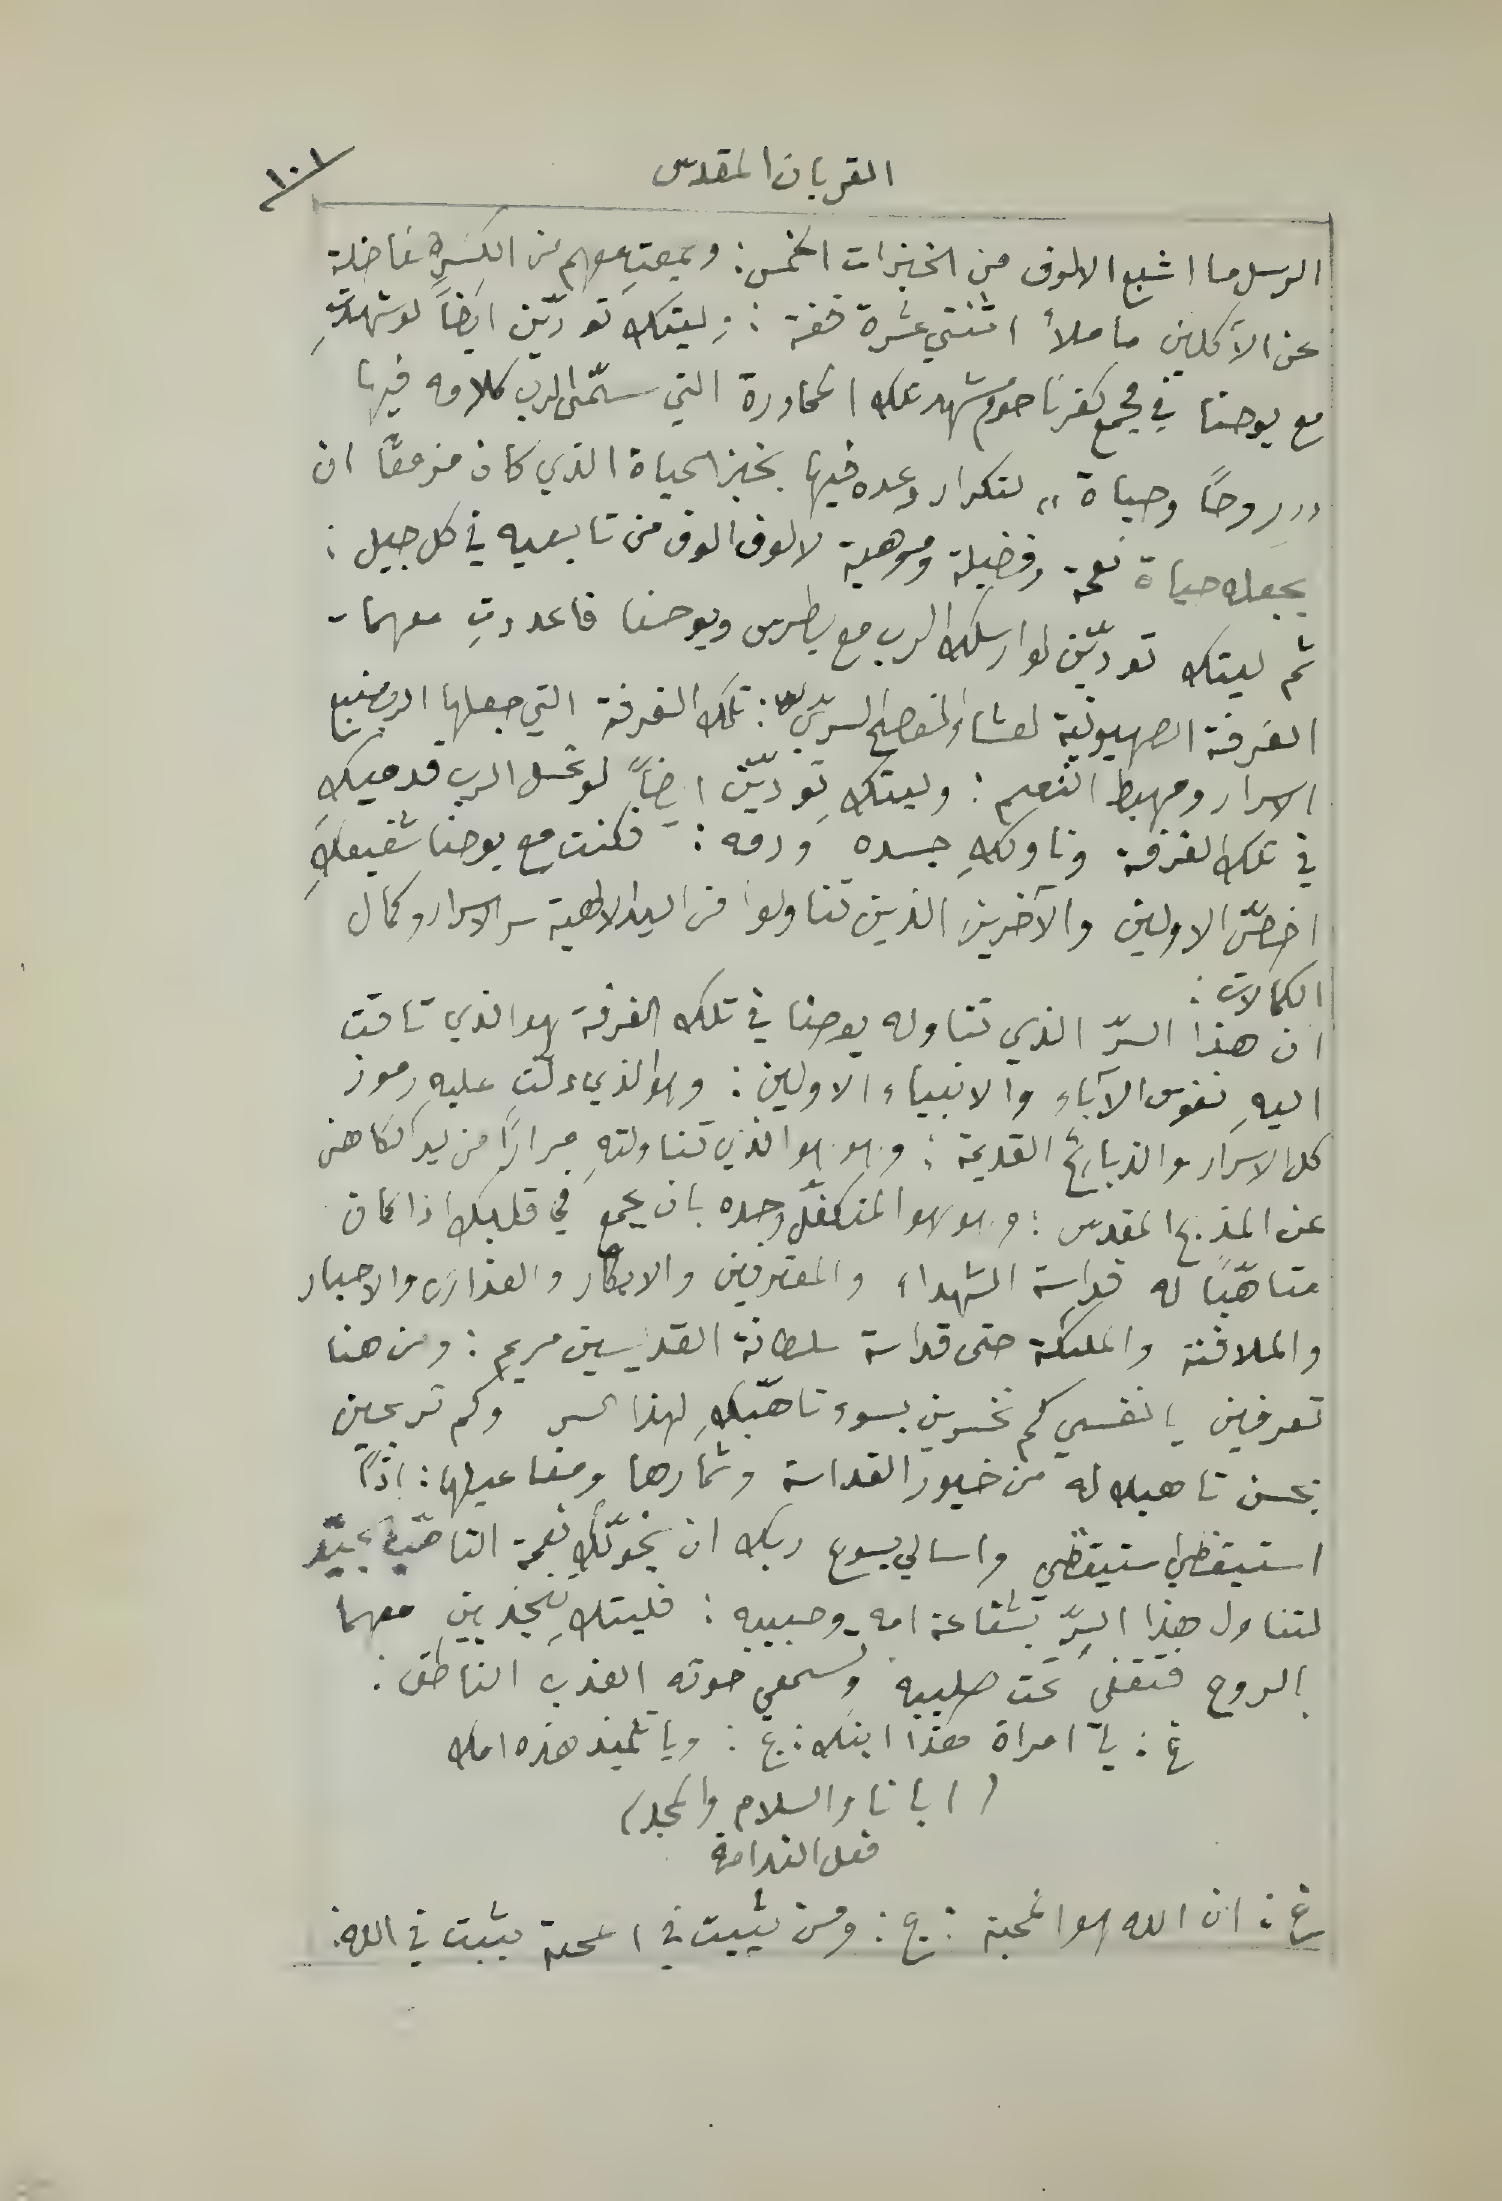 القربان المقدس
١٠١
الرسل ما اشبع الالوف من الخبزات الخمس: وجمعتِ معهم من الكِسَرِ فاضلة
عن الآكلين ما ملأ اثنتي عشرة قفة: وليتكِ تودّين ايضاً لو شهدتِ
مع يوحنا في مجمع كفرناحوم مشهد تلك المحاورة التي سمّى الرب كلامه فيها
"روحاً وحياة" لتكرار وعده فيها بخبز الحياة الذي كان مزمعاً ان
يجعله حياة نعمة وفضيلة وموهبة لالوف الوف من تابعيه في كل جيل:
ثم ليتك تودّين لو ارسلك الرب مع بطرس ويوحنا فاعددتِ معهما -
الغرفة الصهيونية لعشاء الفصح السرّي: تلك الغرفة التي جعلها الرب منبع
الاسرار ومهبط النعيم: وليتكِ تودّين ايضاً لو غسل الرب قدميكِ
في تلك الغرفة وناولكِ جسده ودمه: فكنت مع يوحنا شفيعكِ
اخصّ الاولين والآخرين الذين تناولوا من اليد الالهية سر الاسرار وكمال
الكمالات:
ان هذا السرّ الذي تناوله يوحنا في تلك الغرفة هو الذي تاقت
اليهِ نفوس الآباء والانبياء الاولين: وهو الذي دلّت عليهِ رموز
كل الاسرار والذبائح القديمة: وهو هو الذي تناولتهِ مراراً من يد الكاهن
عن المذبح المقدس: وهو هو المتكفّل وحده بان يجمع في قلبك اذا كان
متاهّباً له قداسة الشهداء والمعترفين والابكار والعذارى والاحبار
والملافنة والملئكة حتى قداسة سلطانة القديسين مريم: ومن هنا
تعرفين يا نفسي كم تخسرين بسوء تاهّبكِ لهذا السر وكم تربحين
بحسن تاهبك له من خيور القداسة وثمارها ومفاعيلها: اذاً
استيقظي استيقظي واسالي يسوع ربك ان يخوّلكِ نعمة التاهّب الجيّد
لتناول هذا السرّ بشفاعة امه وحبيبه: فليتكِ تنجذبين معهما
بالروح فتقفي تحت صليبه وتسمعي صوته العذب الناطق:
غ: يا امراة هذا ابنك: ج: ويا تلميذ هذه امك
(ابانا والسلام والمجد)
فعل الندامة
غ: ان الله هو المحبة: ج: ومن يثبت في المحبة يثبت في الله: